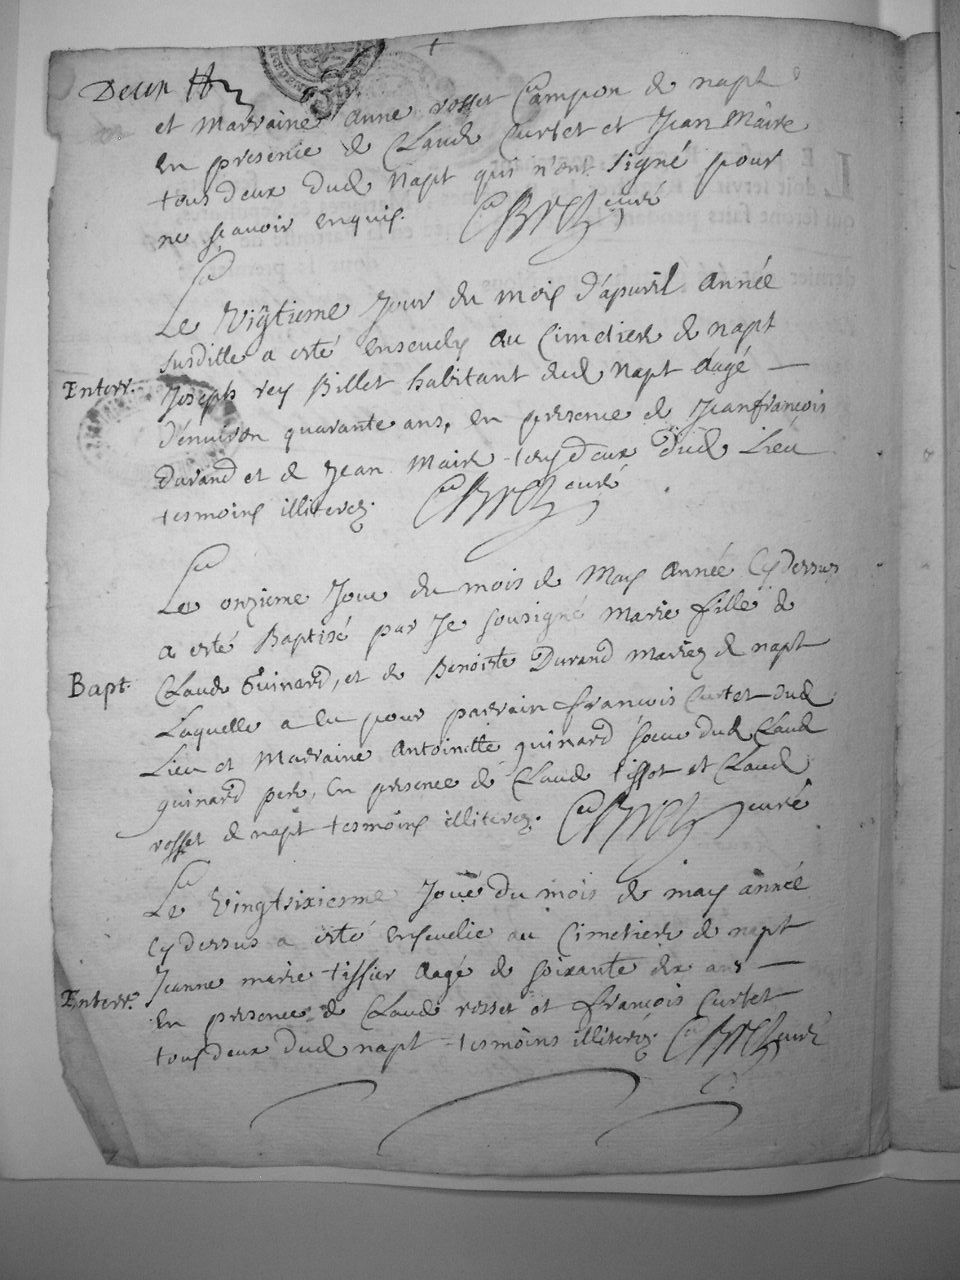 et Marraine Anne rosset Campon de napt
En presence de Claude Curtet et Jean Maire
tous deux dud Napt qui n'ont signé pour
ne scavoir enquis. curé
Le Vigtieme Jour du mois d'apuril année
susditte a esté enseuely au Cimetiere de napt
Enterr.
Joseph rey Billet habitant dud Napt aagé
d'enuiron quarante ans, en presence de Jean françois
Durand et de Jean Maire tous deux dud Lieu
tesmoins illiterez. curé
Le onzieme Jour du mois de May année Cy dessus
a esté Baptisé par Je sousigné Marie fille de
Bapt.
Claude Guinard, et de Benoiste Durand mariez de napt
Laquelle a eu pour parrain francois Curtet dud
Lieu et Marraine Antoinette guinard soeur dud Claud
guinard pere, En presence de Claud tissot et Claud
rosset de napt tesmoins illiterez. curé
Le Vingtsixiesme Jour du mois de may année
Cy dessus a esté Enseuelie au Cimetiere de napt
Jeanne marie tissier aagé de soixante dix ans
Enterr.
En presence de Claud rosset et francois Curtet
tous deux dud napt tesmoins illiterez. curé